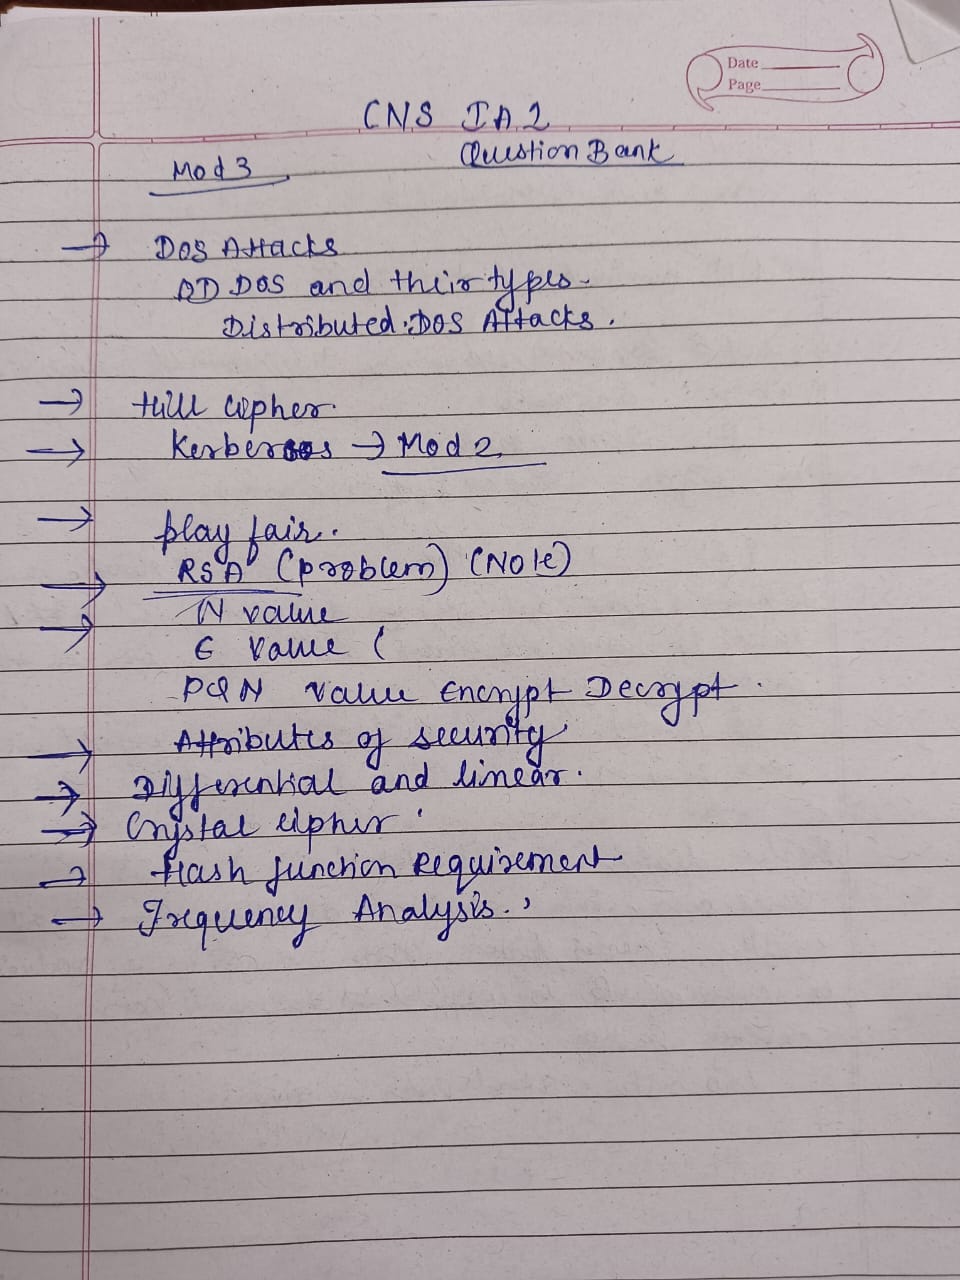 Date
Page
CNS IA2
Question Bank
Mod 3
→ DOS Attacks
DDOS and their types.
Distributed DOS Attacks.
→ Hill cipher.
→ Kerberos → Mod 2
→ play fair.
→ RSA (problem) (Note)
→ N value
E value (
PQN value Encrypt Decrypt.
→ Attributes of security
→ Differential and linear.
→ Crystal cipher
→ Hash function Requirement
→ Frequency Analysis.